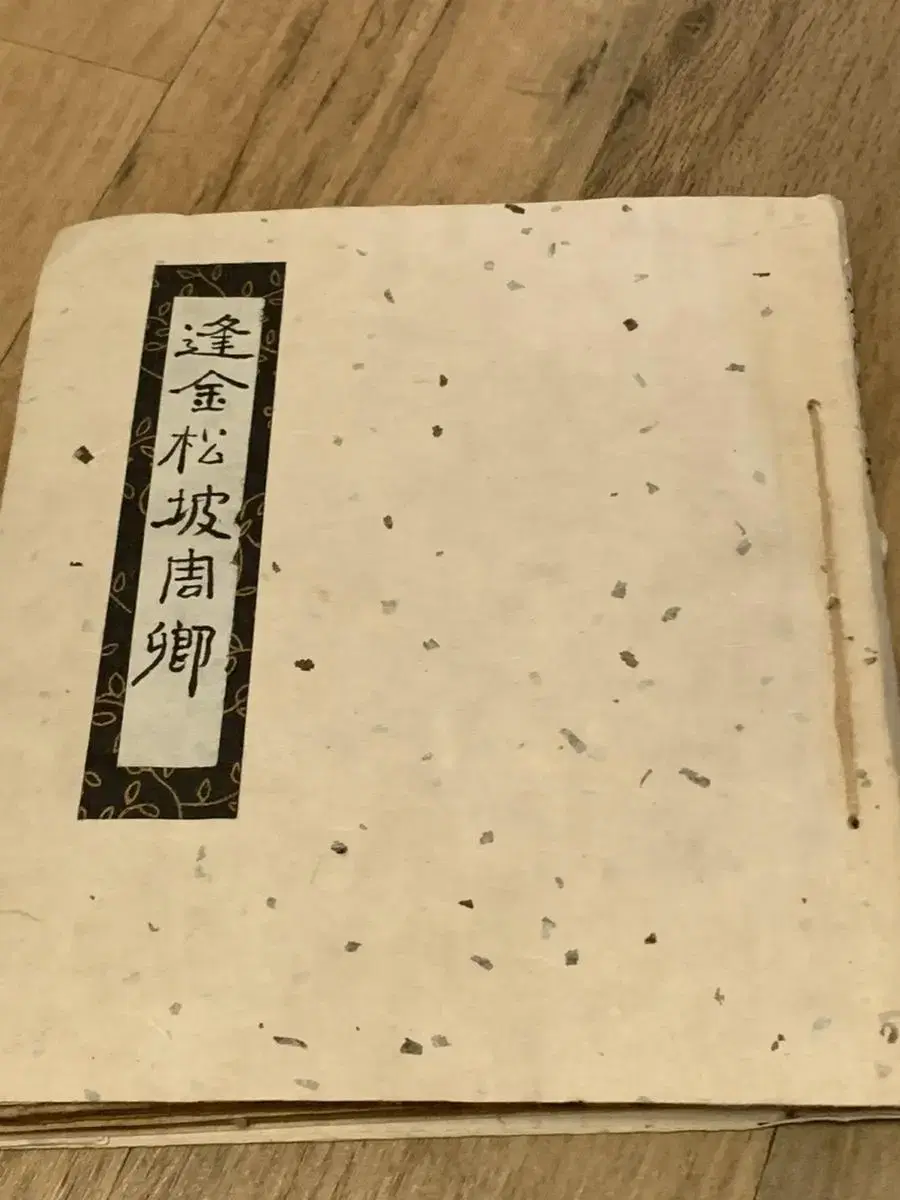 逢金松坡周卿